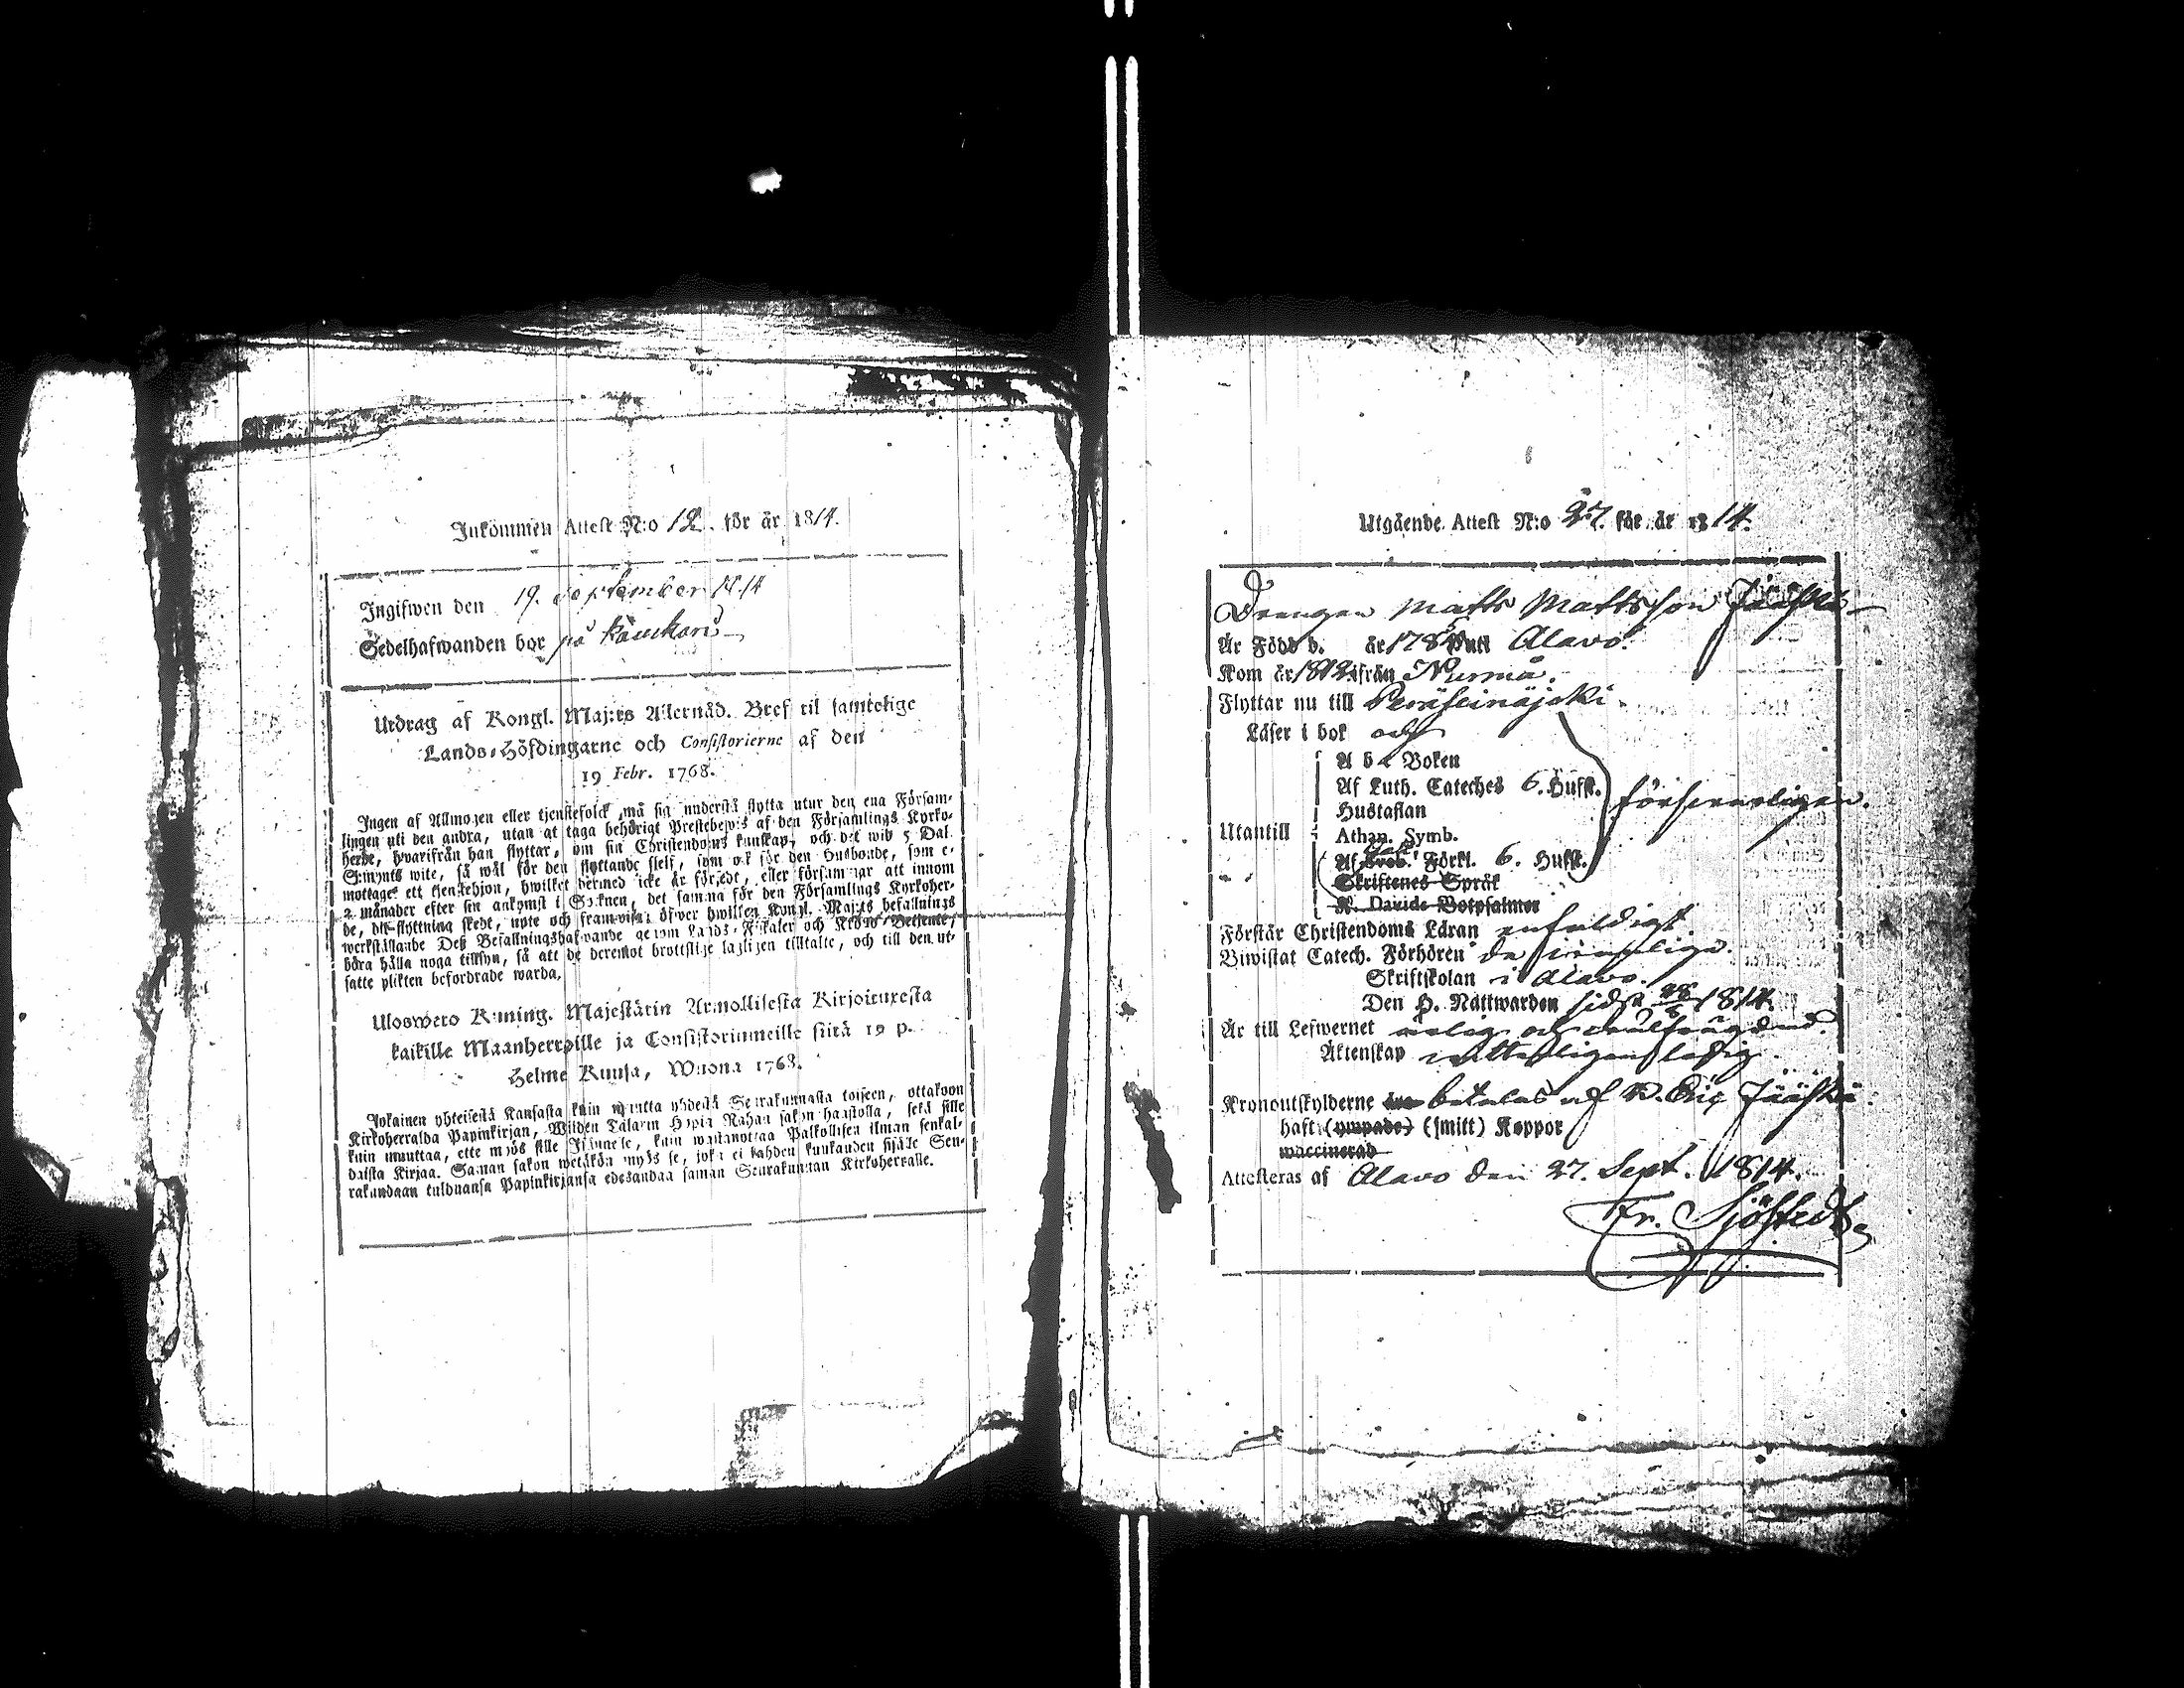 Inkommen Attest N:o 12. för år 1814.
Ingifwen den 19. September 1814
Sedelhafwanden bor på
Utdrag af Kongl. Maj:ts Allernåd. Bref til samtelige
Lands-Höfdingarne och Consistorierne af den
19 Febr. 1768.
Ingen af Allmogen eller tjenstefolck må sig understå flytta utur den ena Församlingen
uti den andra, utan at taga behörigt Prestebewis af den Församlings Kyrkoherde,
hwarifrån han flyttar, om sin Christendoms kunskap, och det wid 5 Dal.
S:mynts wite, så wäl för den flyttande sjelf, som ock för den Husbonde, som emottager
ett tjenstehjon, hwilket dermed icke är försedt, eller försummar att innom
2 månader efter sin ankomst i Socknen, det samma för den Församlings Kyrkoherde,
dit flyttning skedt, upte och framwisa: öfwer hwilken Kongl. Maj:ts befallnings
werkställande Deß Befallningshafwande genom Lands-Fiskaler och Krono-Betjente,
böra hålla noga tillsyn, så att de deremot brottslige lagligen tilltalte, och till den utsatte
plikten befordrade warda.
Uloswero Kuning. Majestärin Armollisesta Kirjoituxesta
kaikille Maanherroille ja Consistoriumeille siitä 19 p.
Helme Kuusa, Wuona 1768.
Jokainen yhteisestä Kansasta kuin muutta yhdestä Seurakunnasta toiseen, ottakoon
Kirkoherralda Papinkirjan, Wiiden Talarin Hopia Rahan sakon haastolla, sekä sille
kuin muuttaa, ette myös sille Isännelle, kuin wastanottaa Palkollisen ilman senkaldaista
Kirjaa. Saman sakon wetäkön myös se, joka ei kahden kuukauden sisälle Seurakundaan
tulduansa Papinkirjansa edesandaa saman Seurakunnan Kirkoherralle.
Utgående Attest N:o 27. för år 1814.
Drengen Matts Mattsson Jääskä
Är Född d. år 178 uti Alavo.
Kom år 1812 ifrån Nurmo.
Flyttar nu till Peräseinäjoki.
Läser i bok och
A b c Boken
Af Luth. Cateches 6. Hufst.
Hustaflan
Utantill
Athan. Symb.
Af Förkl. 6. Hufst.
Skriftenes Språk
K. Davids Botpsalmer
försvarligen.
Förstår Christendoms Läran enfaldigt.
Biwistat Catech. Förhören
Skriftskolan i Alavo.
Den H. Nattwarden sidst 1814.
Är till Lefwernet ärlig och
Äktenskap witterligen ledig.
Kronoutskylderne betalas af B. Eric Jääskä.
haft (ympade) (smitt) Koppor
waccinerad
Attesteras af Alavo den 27. Sept. 1814.
Fr. Sjöstedt